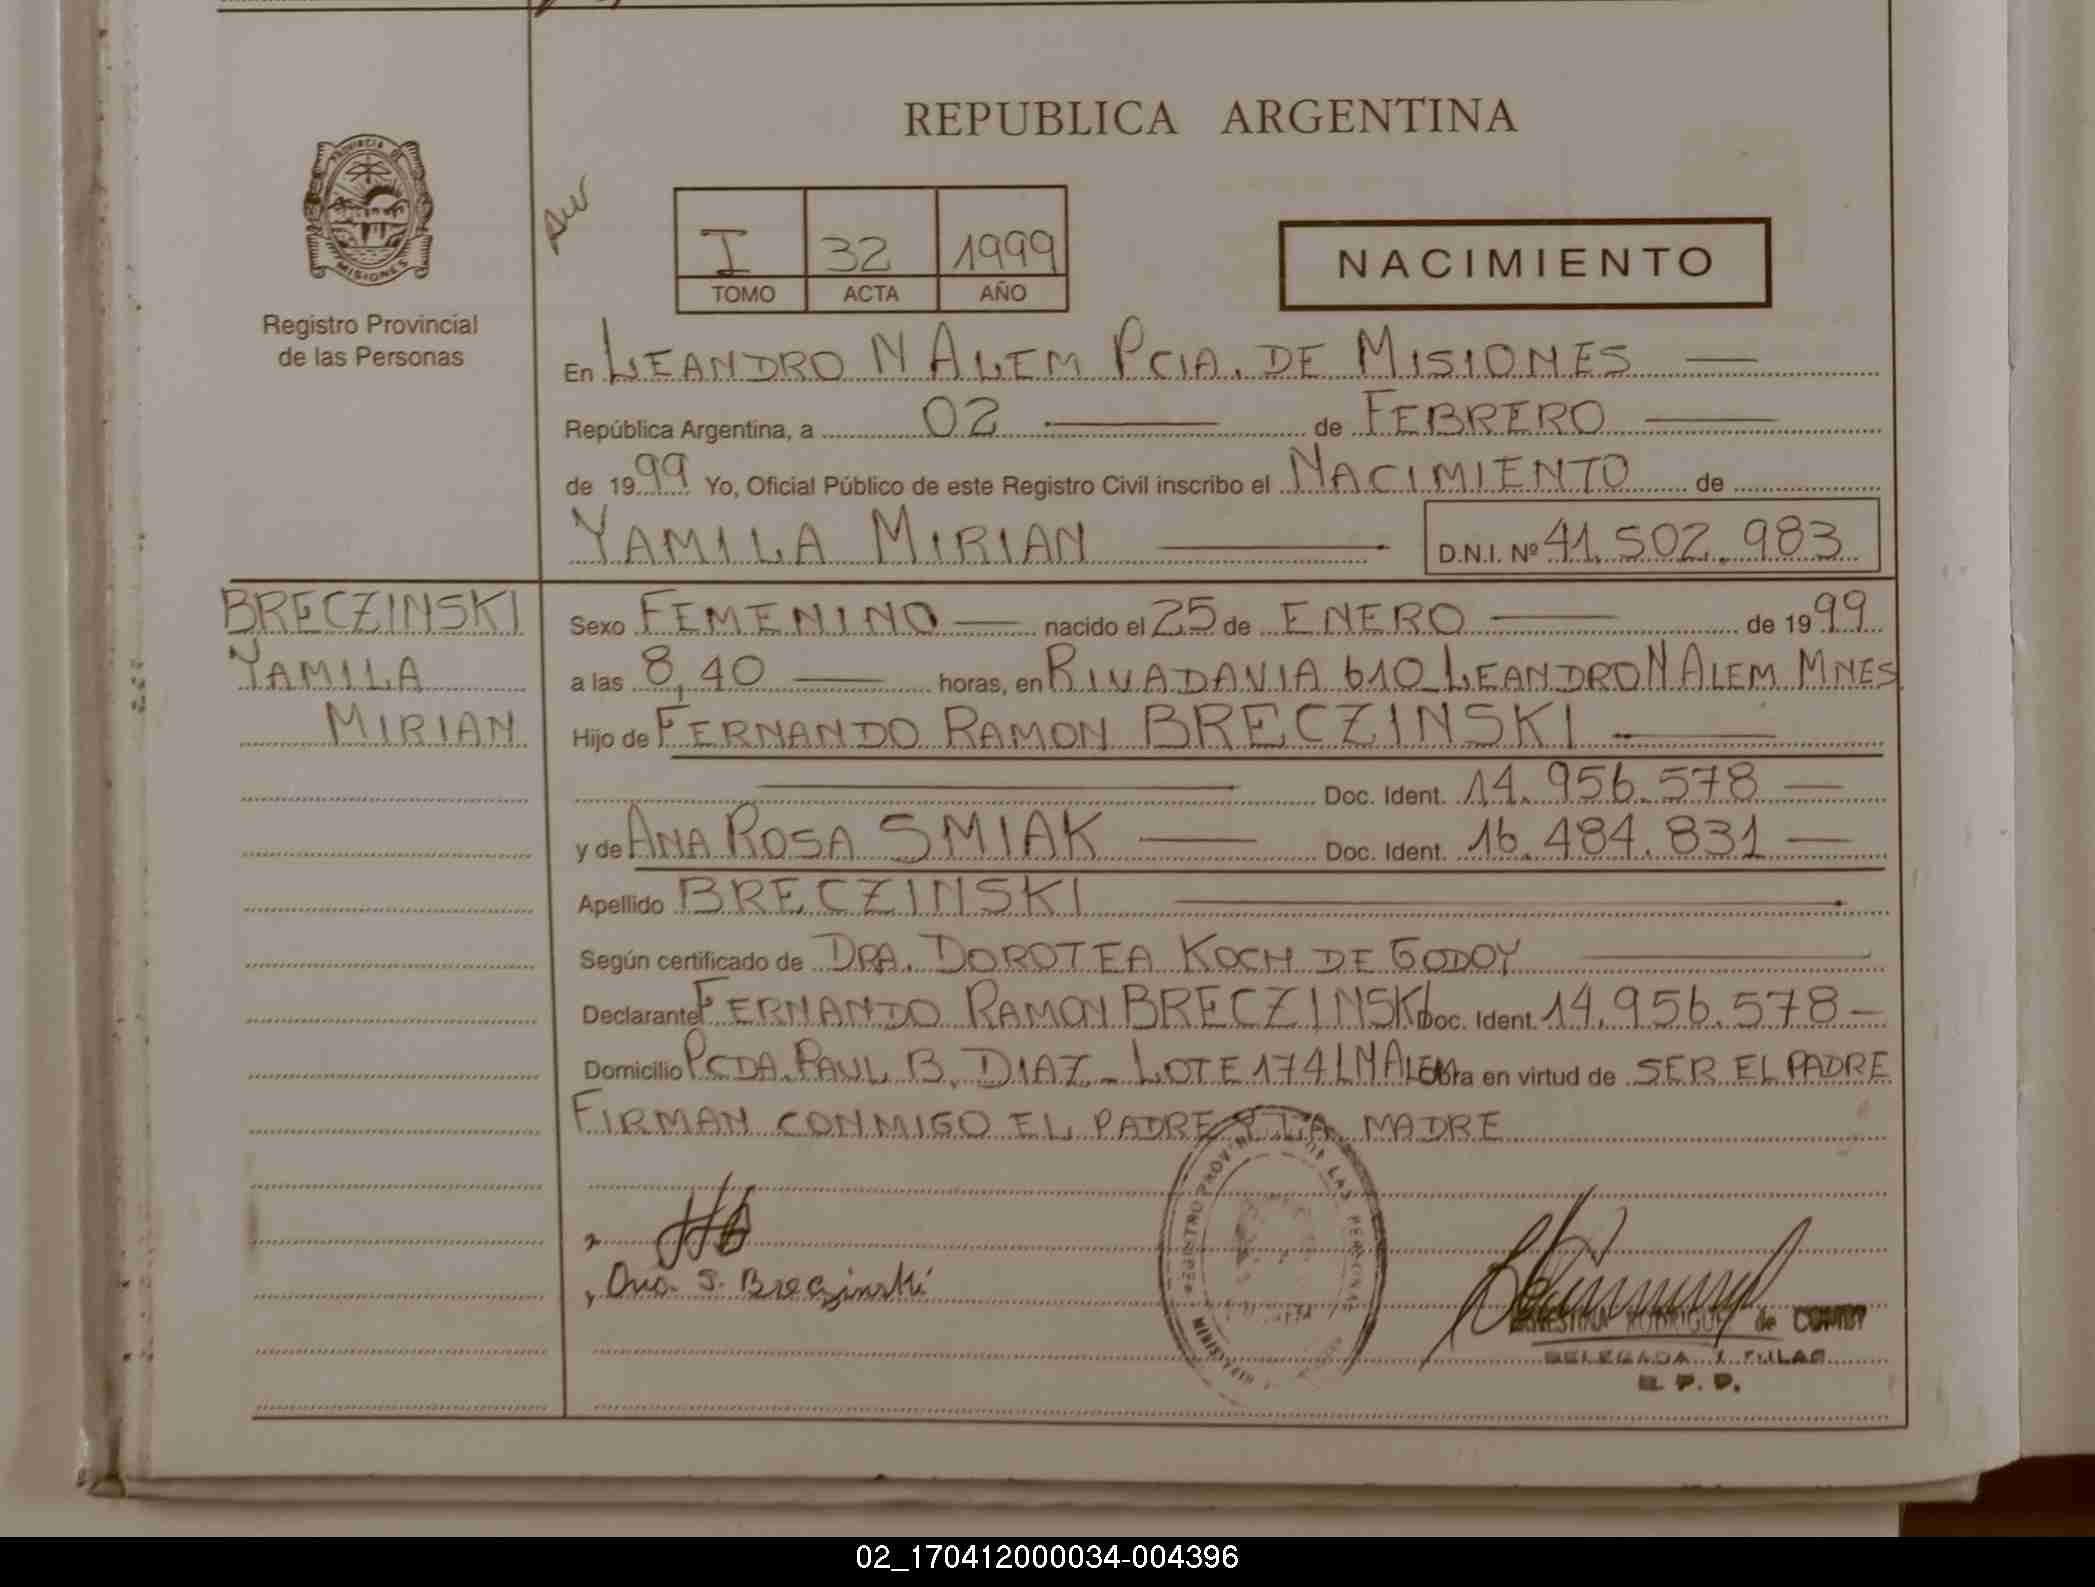 REPUBLICA ARGENTINA
PROVINCIA DE
MISIONES
Registro Provincial
de las Personas
I 32 1999
TOMO ACTA AÑO
NACIMIENTO
En LEANDRO N ALEM PCIA. DE MISIONES
República Argentina, a 02 de FEBRERO
de 1999 Yo, Oficial Público de este Registro Civil inscribo el NACIMIENTO de
YAMILA MIRIAN D.N.I. Nº 41.502.983
BRECZINSKI
YAMILA
MIRIAN
Sexo FEMENINO nacido el 25 de ENERO de 1999
a las 8,40 horas, en RIVADAVIA 610 LEANDRO N ALEM MNES
Hijo de FERNANDO RAMON BRECZINSKI
Doc. Ident. 14.956.578
y de ANA ROSA SMIAK Doc. Ident. 16.484.831
Apellido BRECZINSKI
Según certificado de DRA. DOROTEA KOCH DE GODOY
Declarante FERNANDO RAMON BRECZINSKI Doc. Ident. 14.956.578
Domicilio PCDA. PAUL B. DIAZ - LOTE 174 L N ALEM Obra en virtud de SER EL PADRE
FIRMAN CONMIGO EL PADRE Y LA MADRE
REGISTRO PROV DE LAS PERSONAS
Ana S. Breczinski
ERNESTINA RODRIGUEZ de
DELEGADA TITULAR
R. P. P.
02_170412000034-004396